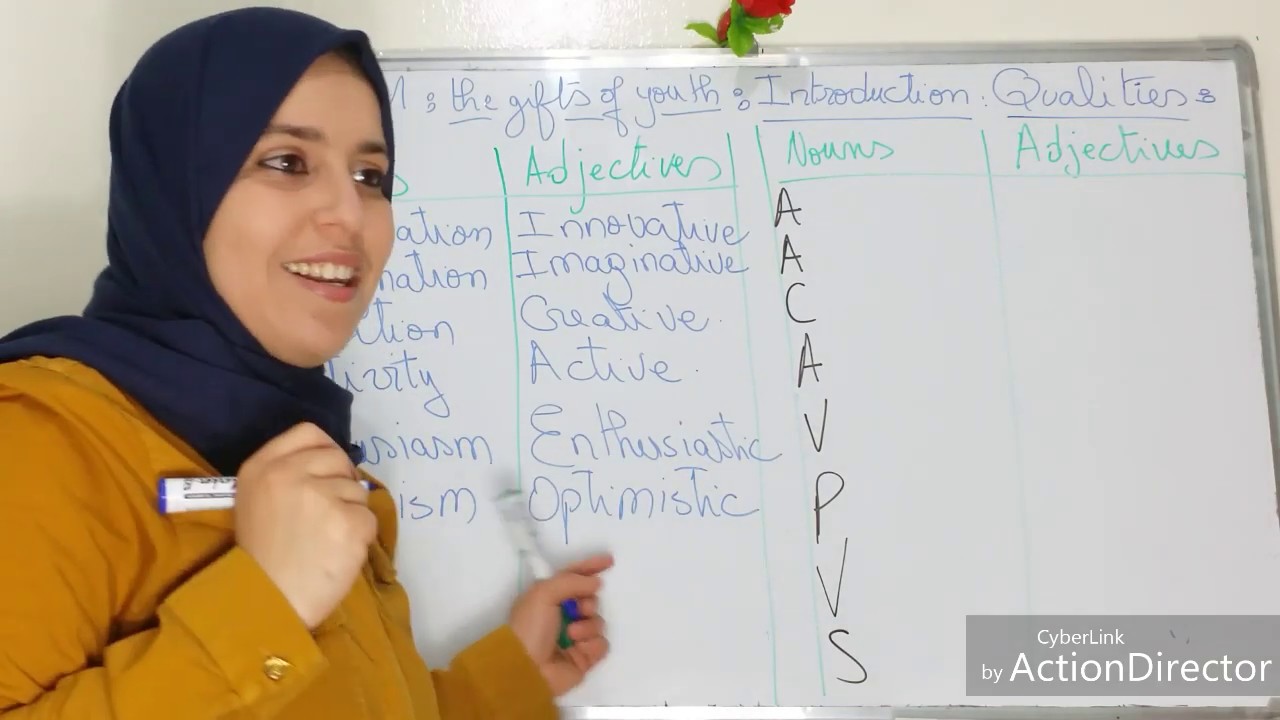 : the gifts of youth : Introduction : Qualities :
Adjectives Nouns Adjectives
Innovative A
Imaginative A
Creative C
Active A
Enthusiastic V
Optimistic P
V
S
CyberLink
by ActionDirector